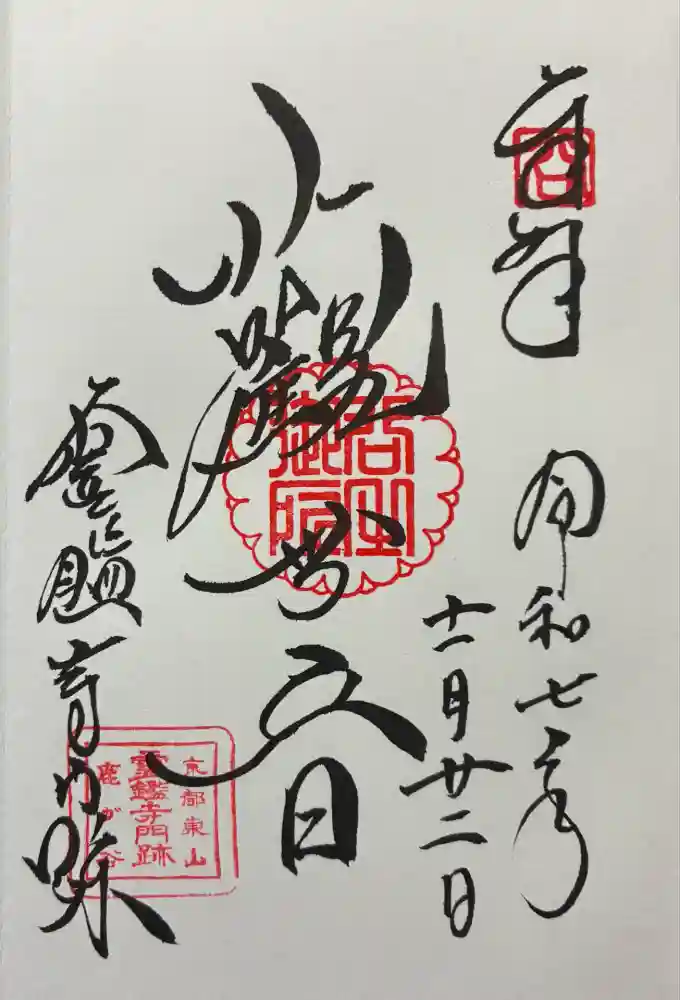 奉拝
令和七年
十一月廿二日
観世音
霊鑑寺門跡
京都東山
霊鑑寺門跡
鹿が谷